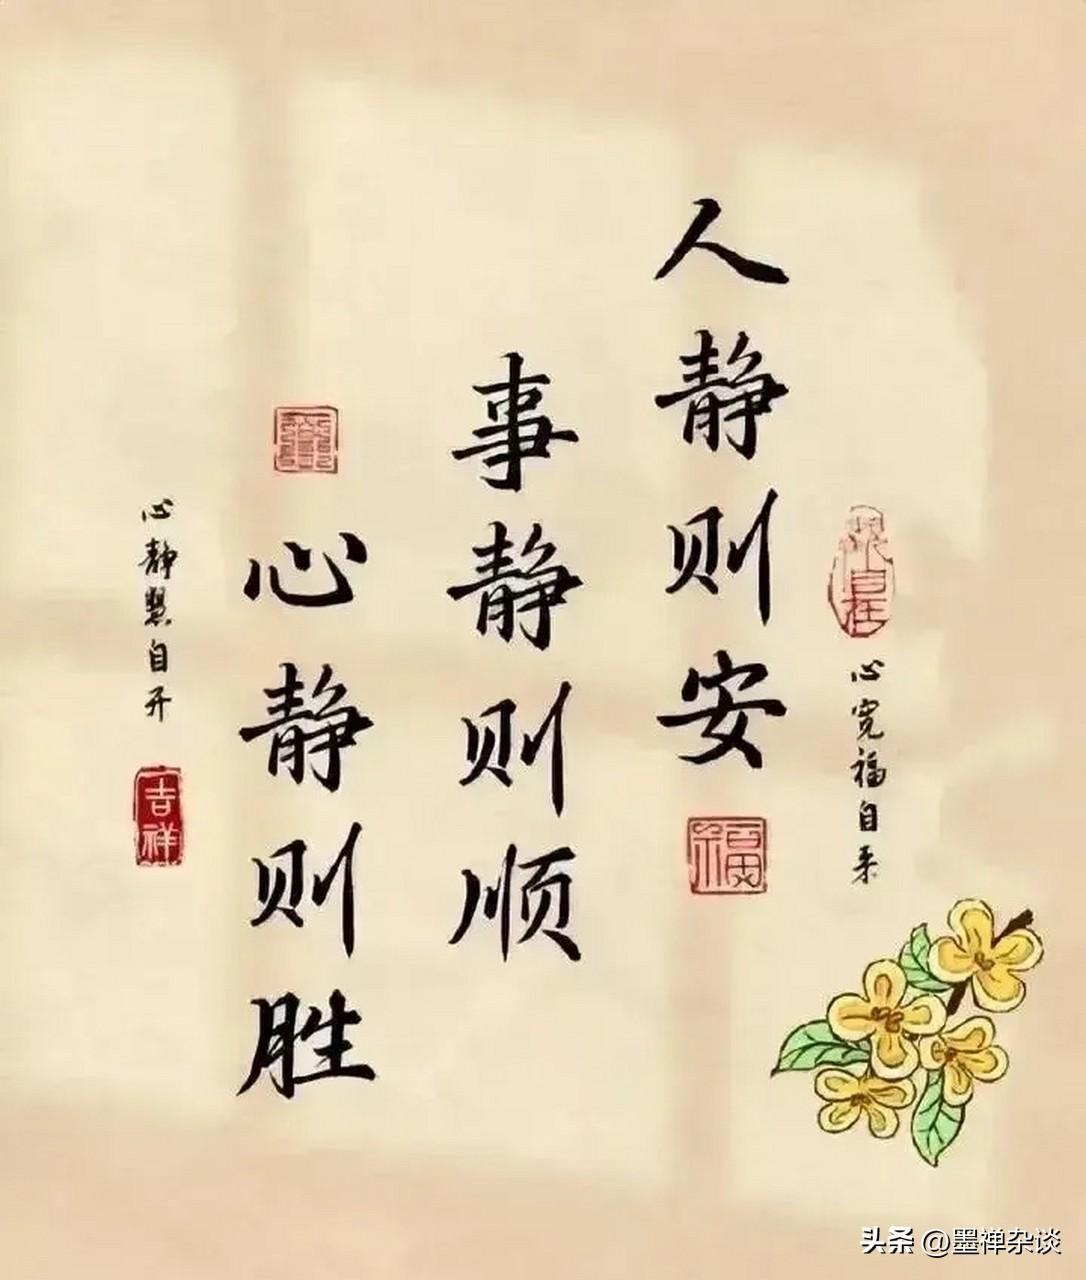 心宽福自来
人静则安
福
事静则顺
心静则胜
心静慧自开
吉祥
头条 @墨禅杂谈